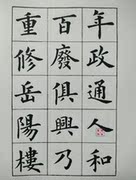 年政通人和
百廢俱興乃
重修岳陽樓